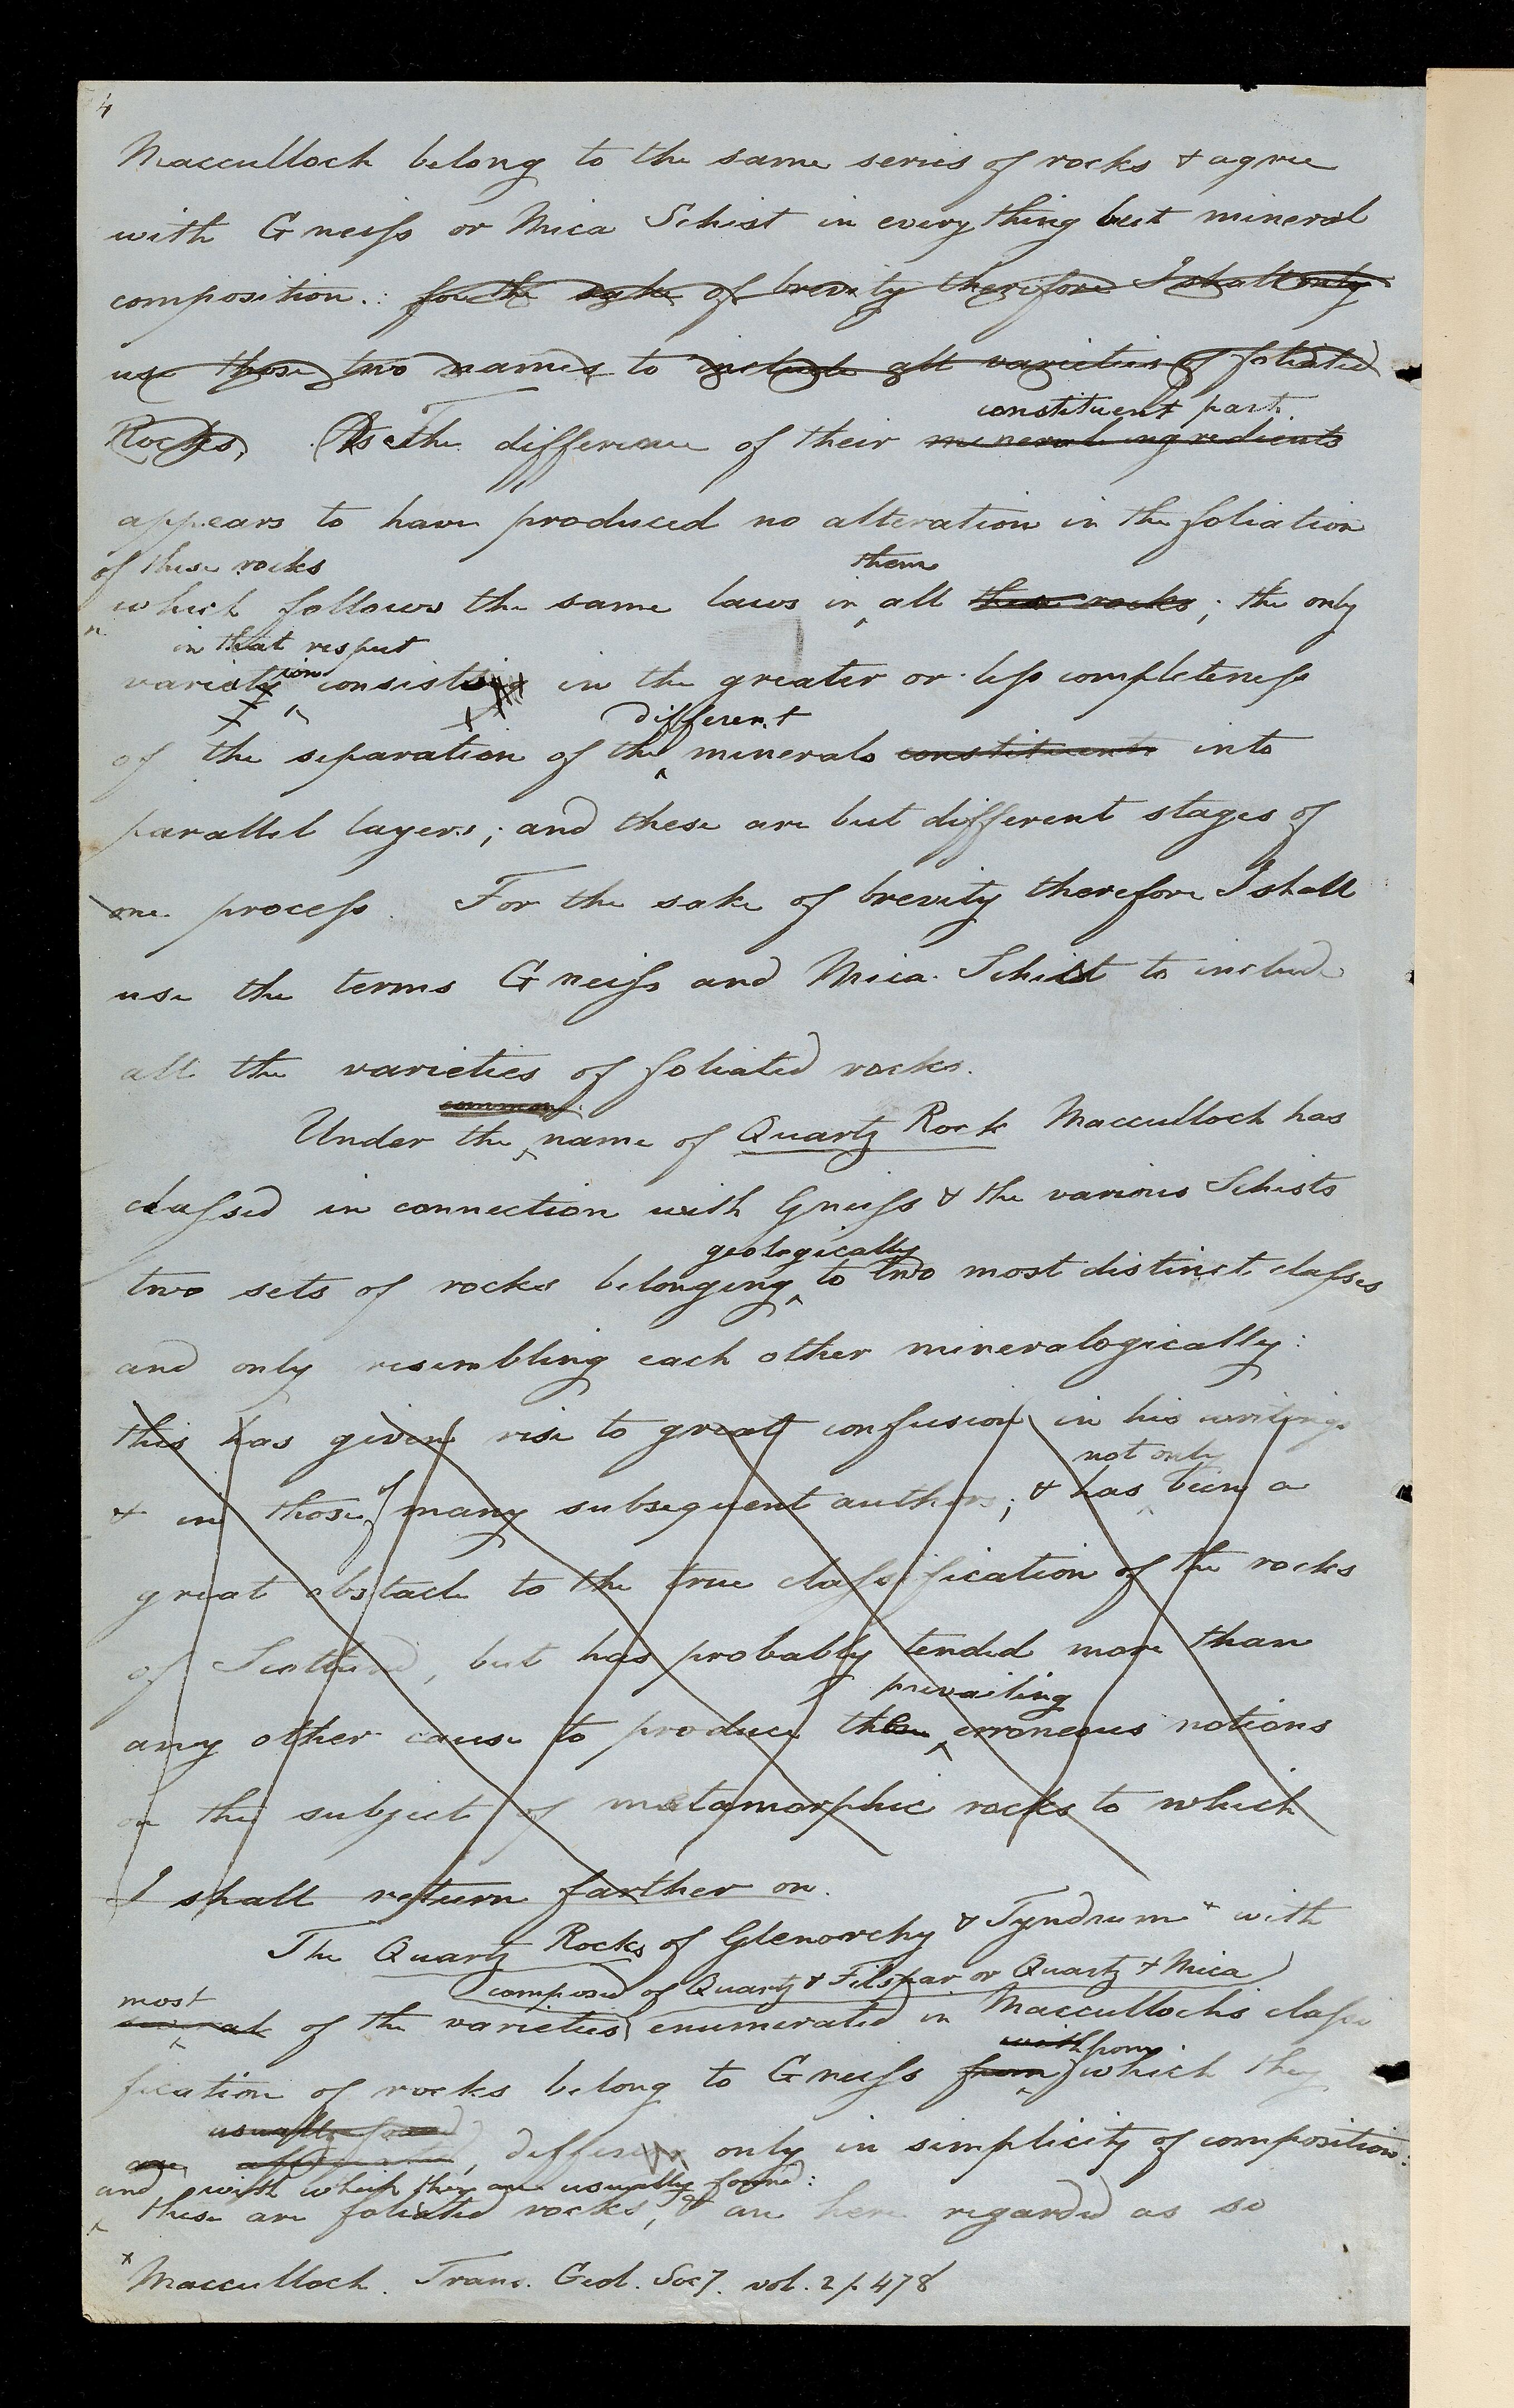 4
Macculloch belong to the same series of rocks & agree
with Gneiss or Mica Schist in every thing but mineral
composition.: for the sake of brevity therefore I shall only
use those two names to include all varieties of foliated
constituent parts
Rocks, As The difference of their mineral ingredients
appears to have produced no alteration in the foliation
of these rocks them
which follows the same laws in all these rocks; the only
in that respect
variation consists in the greater or less completeness
different
of the separation of the minerals constituents into
parallel layers; and these are but different stages of
one process. For the sake of brevity therefore I shall
use the terms Gneiss and Mica Schist to include
all the varieties of foliated rocks.
common
Under the name of Quartz Rock Macculloch has
classed in connection with Gneiss & the various Schists
geologically
two sets of rocks belonging to two most distinct classes
and only resembling each other mineralogically:
this has given rise to great confusion in his writings
not only
& in those of many subsequent authors; & has been a
great obstacle to the true classification of the rocks
of Scotland, but has probably tended more than
prevailing
any other cause to produce the erroneous notions
on the subject of metamorphic rocks to which
I shall return farther on.
The Quartz Rocks of Glenorchy & Tyndrum* with
composed of Quartz & Felspar or Quartz & Mica
most
several of the varieties enumerated in Macculloch's classi
with from
fication of rocks belong to Gneiss from which they
usually found
are associated, differ only in simplicity of composition:
and with which they are usually found:
these are foliated rocks, & are here regarded as so
x Macculloch. Trans. Geol. Socy. vol. 2 p. 478